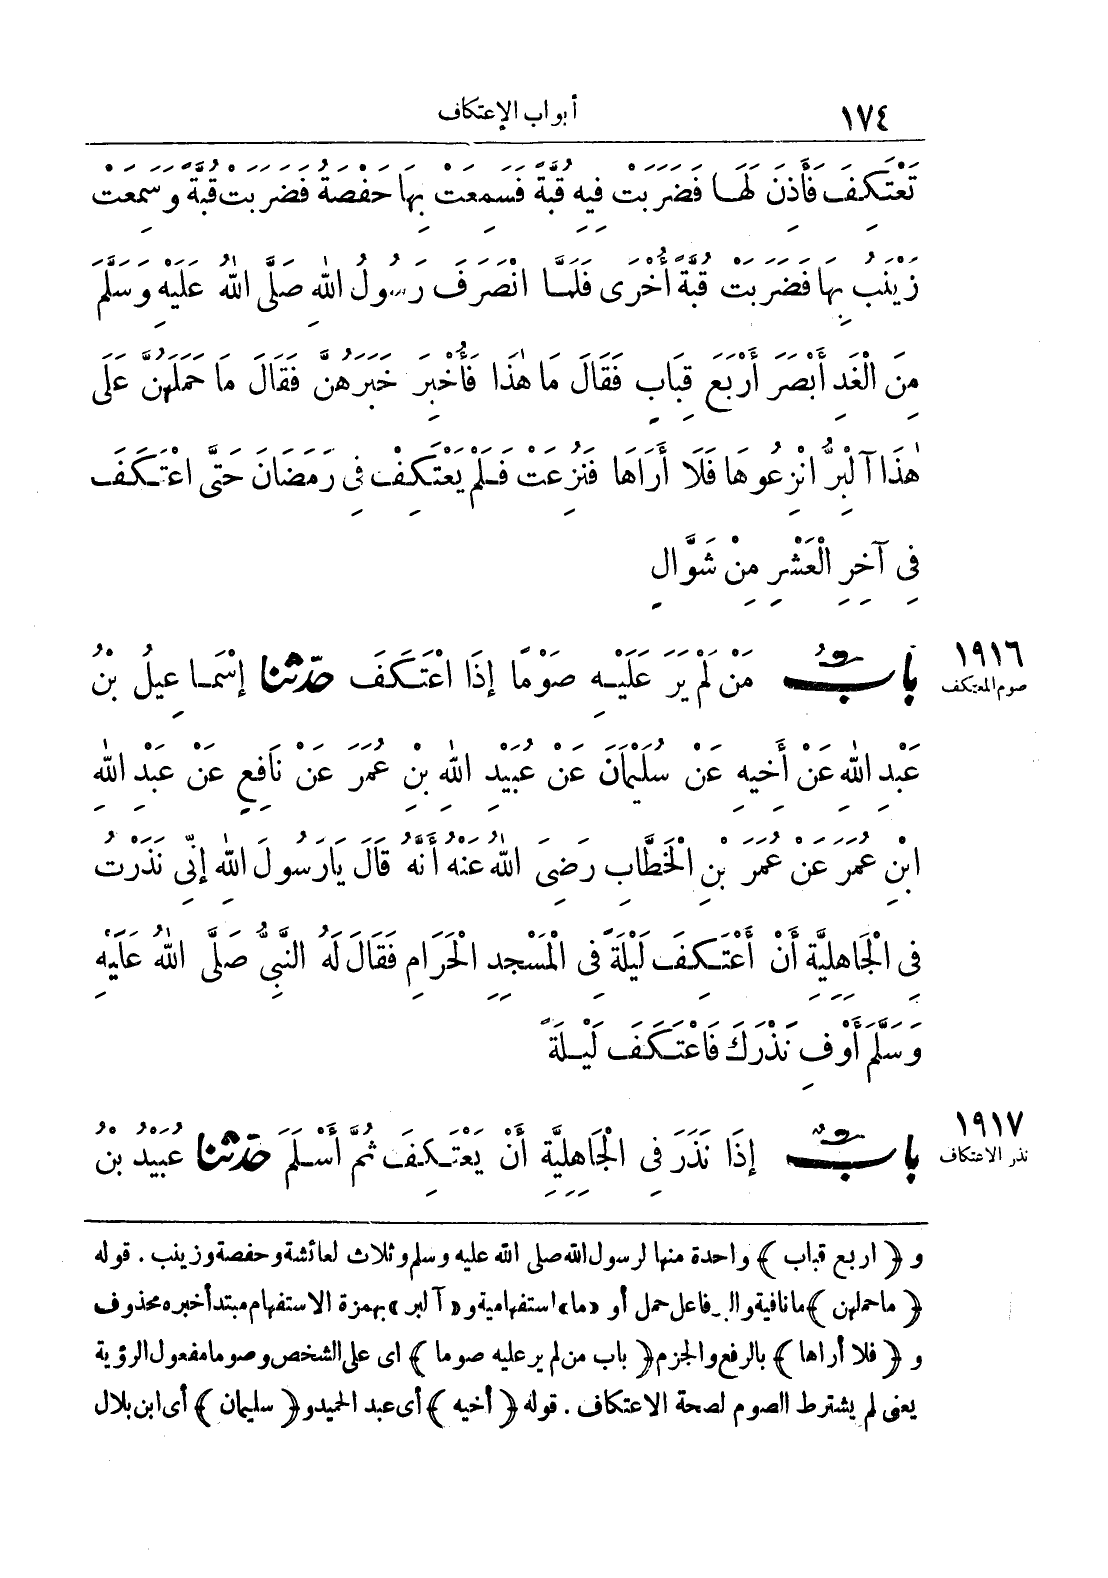 ١٧٤ أبواب الإعتكاف
تَعْتَكِفَ فَأَذِنَ لَهَا فَضَرَبَتْ فِيهِ قُبَّةً فَسَمِعَتْ بِهَا حَفْصَةُ فَضَرَبَتْ قُبَّةً وَسَمِعَتْ
زَيْنَبُ بِهَا فَضَرَبَتْ قُبَّةً أُخْرَى فَلَمَّا انْصَرَفَ رَسُولُ اللهِ صَلَّى اللهُ عَلَيْهِ وَسَلَّمَ
مِنَ الْغَدِ أَبْصَرَ أَرْبَعَ قِبَابٍ فَقَالَ مَا هٰذَا فَأُخْبِرَ خَبَرَهُنَّ فَقَالَ مَا حَمَلَهُنَّ عَلَى
هٰذَا آلْبِرُّ انْزِعُوهَا فَلَا أَرَاهَا فَنُزِعَتْ فَلَمْ يَعْتَكِفْ فِي رَمَضَانَ حَتَّى اعْتَكَفَ
فِي آخِرِ الْعَشْرِ مِنْ شَوَّالٍ
١٩١٦
صوم المعتكف
بَابُ مَنْ لَمْ يَرَ عَلَيْهِ صَوْمًا إِذَا اعْتَكَفَ حَدَّثَنَا إِسْمَاعِيلُ بْنُ
عَبْدِ اللهِ عَنْ أَخِيهِ عَنْ سُلَيْمَانَ عَنْ عُبَيْدِ اللهِ بْنِ عُمَرَ عَنْ نَافِعٍ عَنْ عَبْدِ اللهِ
ابْنِ عُمَرَ عَنْ عُمَرَ بْنِ الْخَطَّابِ رَضِيَ اللهُ عَنْهُ أَنَّهُ قَالَ يَا رَسُولَ اللهِ إِنِّي نَذَرْتُ
فِي الْجَاهِلِيَّةِ أَنْ أَعْتَكِفَ لَيْلَةً فِي الْمَسْجِدِ الْحَرَامِ فَقَالَ لَهُ النَّبِيُّ صَلَّى اللهُ عَلَيْهِ
وَسَلَّمَ أَوْفِ نَذْرَكَ فَاعْتَكَفَ لَيْلَةً
١٩١٧
نذر الاعتكاف
بَابٌ إِذَا نَذَرَ فِي الْجَاهِلِيَّةِ أَنْ يَعْتَكِفَ ثُمَّ أَسْلَمَ حَدَّثَنَا عُبَيْدُ بْنُ
و﴿اربع قباب﴾ واحدة منها لرسول الله صلى الله عليه وسلم وثلاث لعائشة وحفصة وزينب. قوله
﴿ما حملهن﴾ ما نافية والبر فاعل حمل أو «ما» استفهامية و«آلبر» بهمزة الاستفهام مبتدأ خبره محذوف
و﴿فلا أراها﴾ بالرفع والجزم ﴿باب من لم ير عليه صوما﴾ اى على الشخص وصوما مفعول الرؤية
يعنى لم يشترط الصوم لصحة الاعتكاف. قوله ﴿أخيه﴾ أى عبد الحميد و﴿سليمان﴾ أى ابن بلال